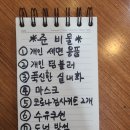 *준비물*
① 개인 세면용품
② 개인 텀블러
③ 푹신한 실내화
④ 마스크
⑤ 코로나검사키트 2개
⑥ 수유쿠션
⑦ 도넛 방석